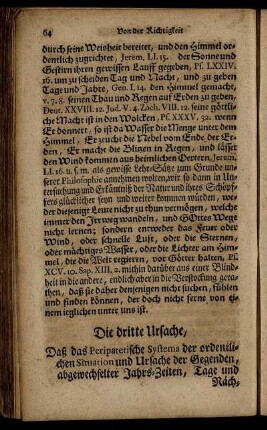 64 Von der Richtigkeit
durch seine Weisheit bereitet, und den Himmel or-
dentlich zugerichtet, Jerem. LI. 15. der Sonne und
Gestirn ihren gewissen Lauff gegeben, Ps. LXXIV.
16. um zu scheiden Tag und Nacht, und zu geben
Tage und Jahre, Gen. I. 14. den Himmel gemacht,
v. 7. 8. seinen Thau und Regen auf Erden zu geben,
Deut. XXVIII. 12. Jud. V. 4. Zach. VIII. 12. seine göttli-
che Macht ist in den Wolcken, Ps. XXXV. 32. wenn
Er donnert, so ist da Wasser die Menge unter dem
Himmel, Er zeucht die Nebel vom Ende der Er-
den, Er macht die Blitzen in Regen, und lässet
den Wind kommen aus heimlichen Oertern, Jerem.
LI. 16. u. s. m. als gewisse Lehr-Sätze zum Grunde un-
serer Philosophie annehmen wolten, wir so dann in Un-
tersuchung und Erkäntniß der Natur und ihres Schöpf-
fers glücklicher seyn und weiter kommen würden, we-
der diejenige Leute nicht zu thun vermögen, welche
immer den Irrweg wandeln, und GOttes Wege
nicht lernen; sondern entweder das Feur oder
Wind, oder schnelle Luft, oder die Sternen,
oder mächtiges Wasser, oder die Lichter am Him-
mel, die die Welt regieren, vor Götter halten, Ps.
XCV. 10. Sap. XIII. 2. mithin darüber aus einer Blind-
heit in die andere, endlich aber in die Verstockung gera-
then, daß sie daher denjenigen nicht suchen, fühlen
und finden können, der doch nicht ferne von ei-
nem ieglichen unter uns ist.
Die dritte Ursache,
Daß das Peripatetische Systema der ordentli-
chen Situation und Ursache der Gegenden,
abgewechselter Jahrs-Zeiten, Tage und
Näch-